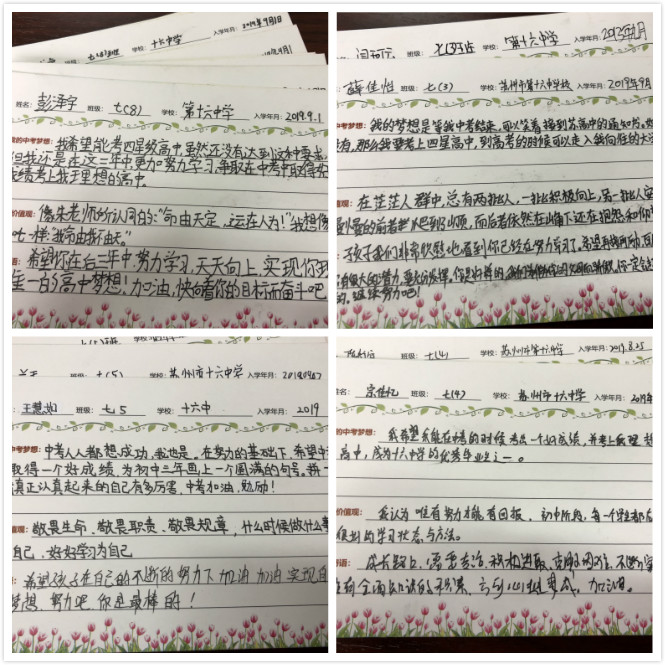 七(8)班 十六中学 2019年9月1日
姓名: 彭泽宇 班级: 七(8) 学校: 第十六中学 入学年月: 2019.9.1
的中考梦想: 我希望能考四星级高中虽然还没有达到这种要求
但我还是在这三年中更加努力学习,争取在中考中取得好
成绩考上我于理想的高中。
价值观: 像朱老师所认同的:"命由天定,运在人为!"我想像
一样:我命由我不由天。"
语: 希望你在后三年中努力学习,天天向上,实现你
的高中梦想!加油,快向着你的目标而奋斗吧
七(3)班 学校: 第十六中学 入学年月:
薛佳怡 班级: 七(3) 学校: 苏州市第十六中学校 入学年月: 2019年9月
中考梦想: 我的梦想是等我中考结束,可以笑着接到苏高中的通知书。
有,那么我要考上四星高中,到高考的时候可以走入我向往的大
值观: 在茫茫人群中,总有两批人,一批积极向上,另一批人
的前者 到山顶,而后者依然在山脚下还在
孩子我们非常欣慰地看到你已经在努力了。希望
的,继续努力吧!
七(5) 学校: 苏州市十六中学 入学年月:
王慧如 班级: 七5 学校: 十六中 入学年月: 2019
中考梦想: 中考人人都想成功,我也是,在努力的基础下,希望中考
取得一个好成绩,为初中三年画上一个圆满的句号。拼一
真正认真起来的自己有多厉害,中考加油,勉励!
值观: 敬畏生命、敬畏职责、敬畏规章,什么时候做什么事
自己,好好学习为自己
: 希望孩子在自己的不断的努力下加油加油实现自
梦想,努力吧,你是最棒的!
班级: 七(4) 学校: 苏州市第十六中学 入学年月: 2019.8.25
姓名: 宗佳忆 班级: 七(4) 学校: 苏州市十六中学 入学年月: 2019年
的中考梦想: 我希望我能在中考的时候考出一个好成绩,并考上我理想
高中,成为十六中学的优秀毕业生之一。
价值观: 我认为唯有努力才能有回报。初中阶段,每一个学生都应
的学习状态与方法。
语: 成长路上,需要专注、积极进取、克服困难、不断
全面 梦成。加油。